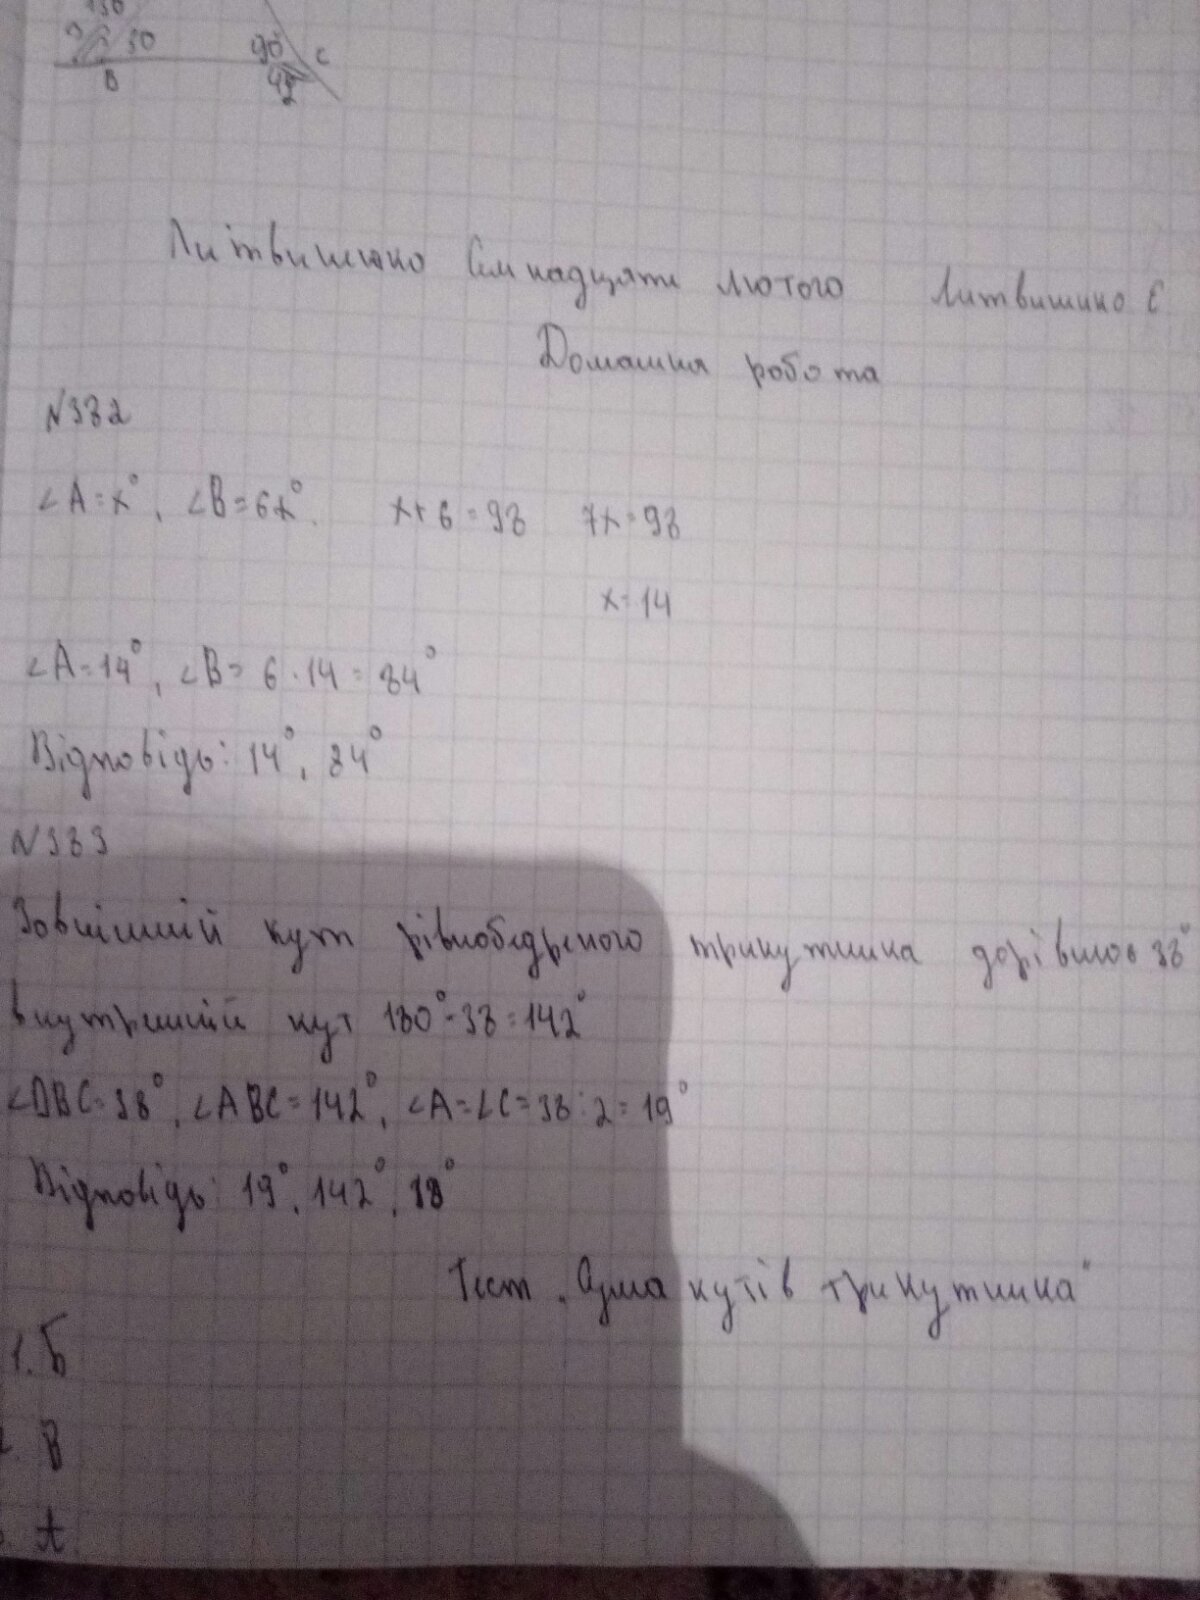 130
30
B
90
C
Литвишко Сімнадцяте лютого Литвишко Є
Домашня робота
N382
∠A=x°, ∠B=6x°. x+6=98 7x=98
x=14
∠A=14°, ∠B= 6·14=84°
Відповідь: 14°, 84°
N383
Зовнішній кут рівнобедреного трикутника дорівнює 38°
внутрішній кут 180°-38=142°
∠DBC=38°, ∠ABC=142°, ∠A=∠C=38:2=19°
Відповідь: 19°, 142°, 19°
Тест „Сума кутів трикутника"
1. Б
2. В
3. А